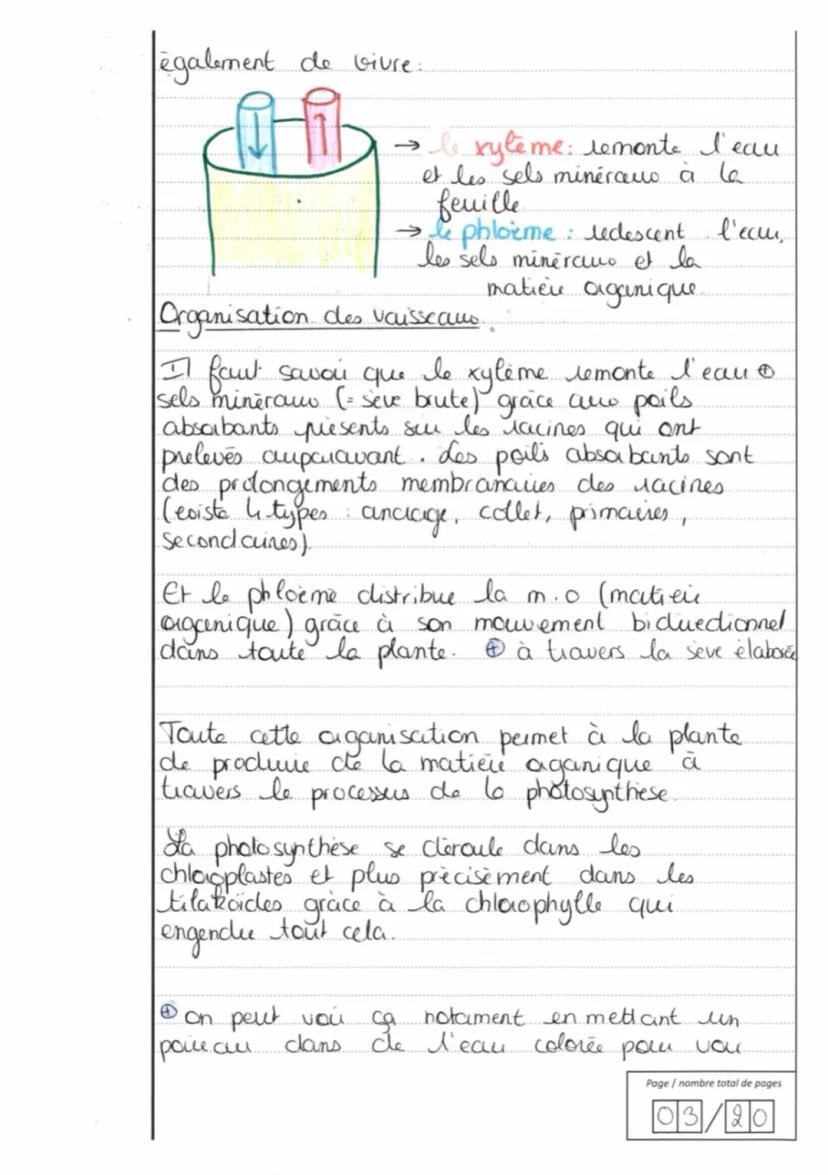 également de vivre :
→ le xylème : remonte l'eau
et les sels minéraux à la
feuille
→ le phloème : redescent l'eau,
les sels minéraux et la
matière organique
Organisation des vaisseaux.
Il faut savoir que le xylème remonte l'eau ⊕
sels minéraux (= sève brute) grâce aux poils
absorbants présents sur les racines qui ont
prelevés auparavant. Les poils absorbants sont
des prolongements membranaires des racines
(existe 4 types : ancrage, collet, primaires,
secondaires).
Et le phloème distribue la m.o (matière
organique) grâce à son mouvement bidirectionnel
dans toute la plante. ⊕ à travers la sève élaborée
Toute cette organisation permet à la plante
de produire de la matière organique à
travers le processus de la photosynthèse.
La photosynthèse se déroule dans les
chloroplastes et plus précisément dans les
tilakoides grâce à la chlorophylle qui
engendre tout cela.
⊕ on peut voir ça notament en mettant un
poireau dans de l'eau colorée pour voir
Page / nombre total de pages
03/20